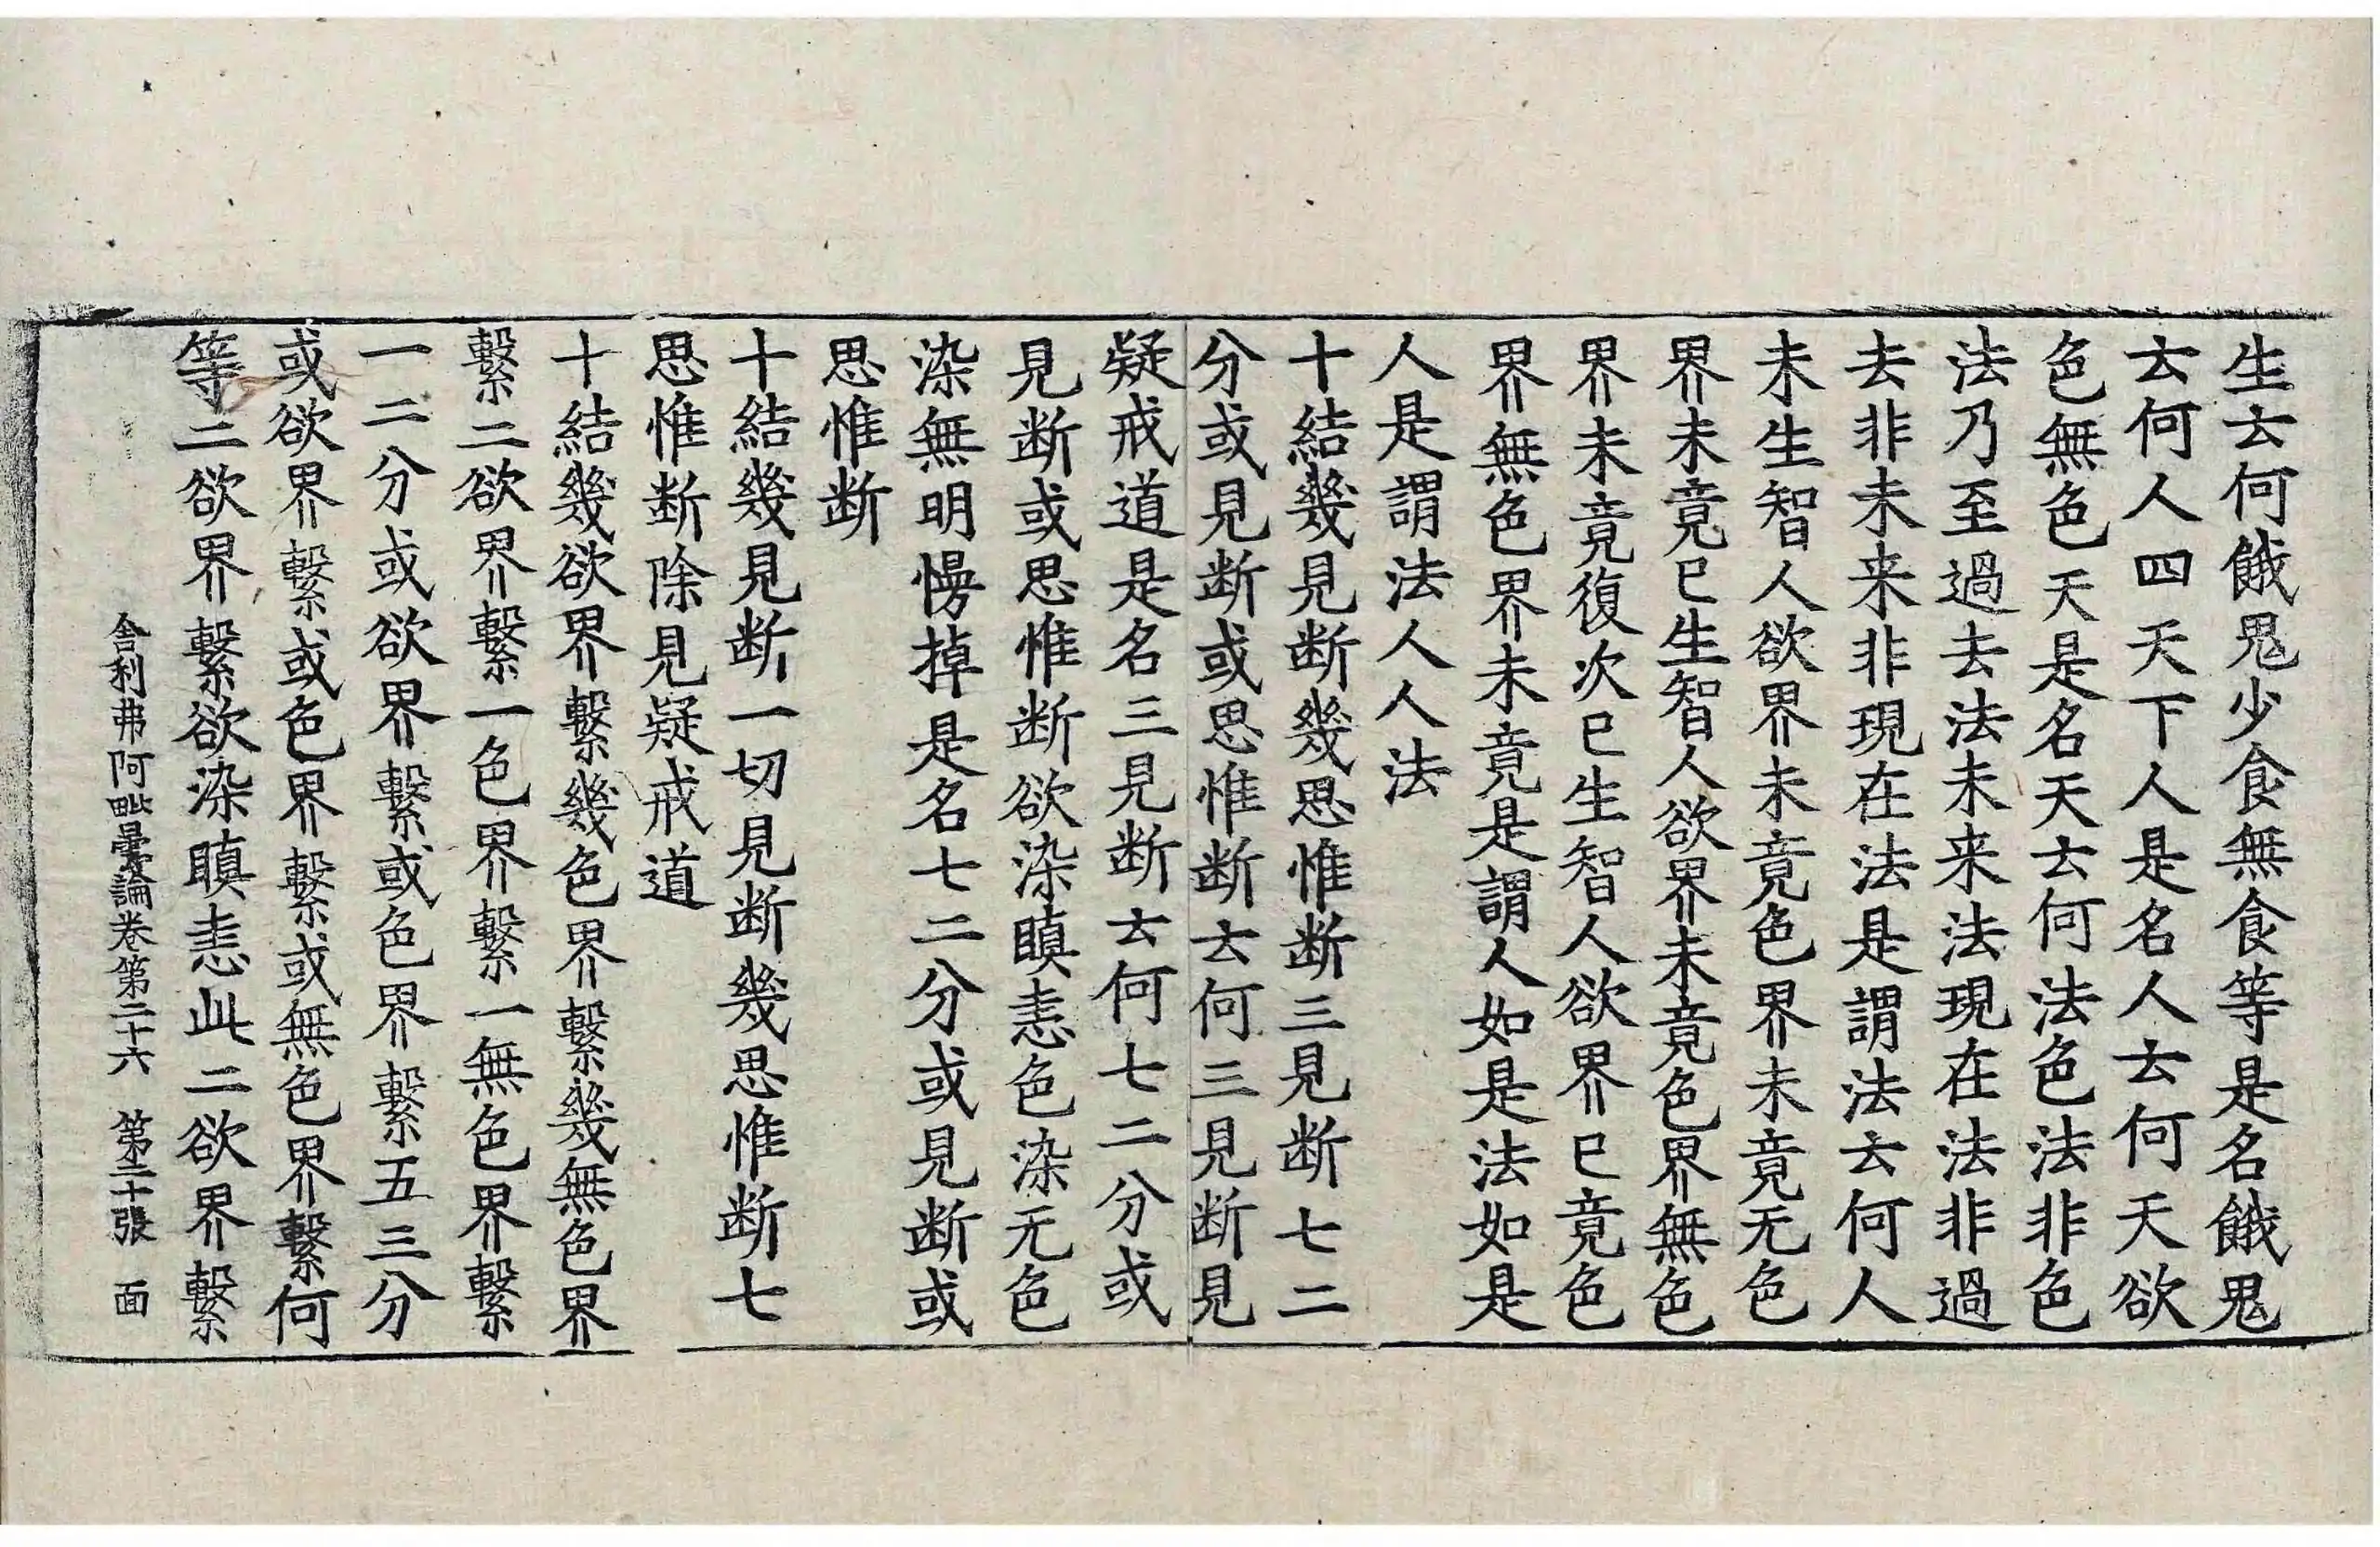 生去何餓鬼少食無食等是名餓鬼
去何人四天下人是名人去何天欲
色無色天是名天去何法色法非色
法乃至過去法未来法現在法非過
去非未来非現在法是謂法去何人
未生智人欲界未竟色界未竟无色
界未竟已生智人欲界未竟色界無色
界未竟復次已生智人欲界已竟色
界無色界未竟是謂人如是法如是
人是謂法人人法
十結幾見断幾思惟断三見断七二
分或見断或思惟断去何三見断見
疑戒道是名三見断去何七二分或
見断或思惟断欲染瞋恚色染无色
染無明慢掉是名七二分或見断或
思惟断
十結幾見断一切見断幾思惟断七
思惟断除見疑戒道
十結幾欲界繫幾色界繫幾無色界
繫二欲界繫一色界繫一無色界繫
一二分或欲界繫或色界繫五三分
或欲界繫或色界繫或無色界繫何
等二欲界繫欲染瞋恚此二欲界繫
舎利弗阿毗曇論卷第二十六 第二十張 面